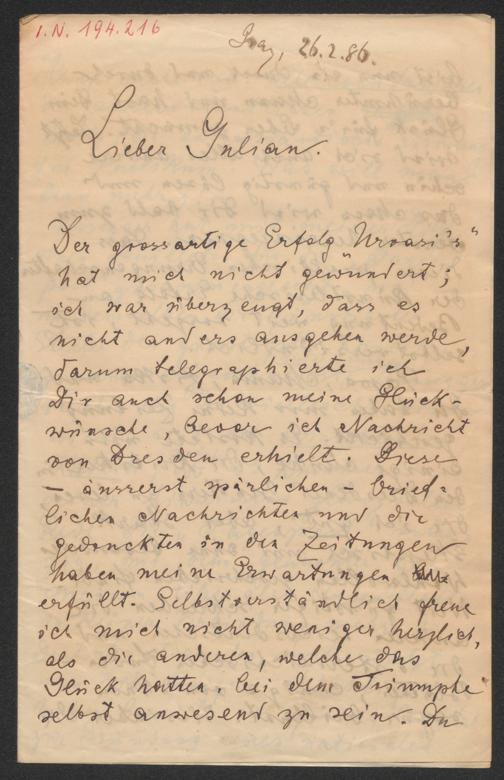 I.N. 194.216
Graz, 26.2.86.
Lieber Julian.
Der grossartige Erfolg Urvasi's"
hat mich nicht gewundert;
ich war überzeugt, dass es
nicht anders ausgehen werde,
darum telegraphierte ich
Dir auch schon meine Glück-
wünsche, bevor ich Nachricht
von Dresden erhielt. Diese
– äusserst spärlichen – brief-
lichen Nachrichten und die
gedruckten in den Zeitungen
haben meine Erwartungen
erfüllt. Selbstverständlich freue
ich mich nicht weniger herzlich,
als die anderen, welche das
Glück hatten, bei dem Triumphe
selbst anwesend zu sein. Du